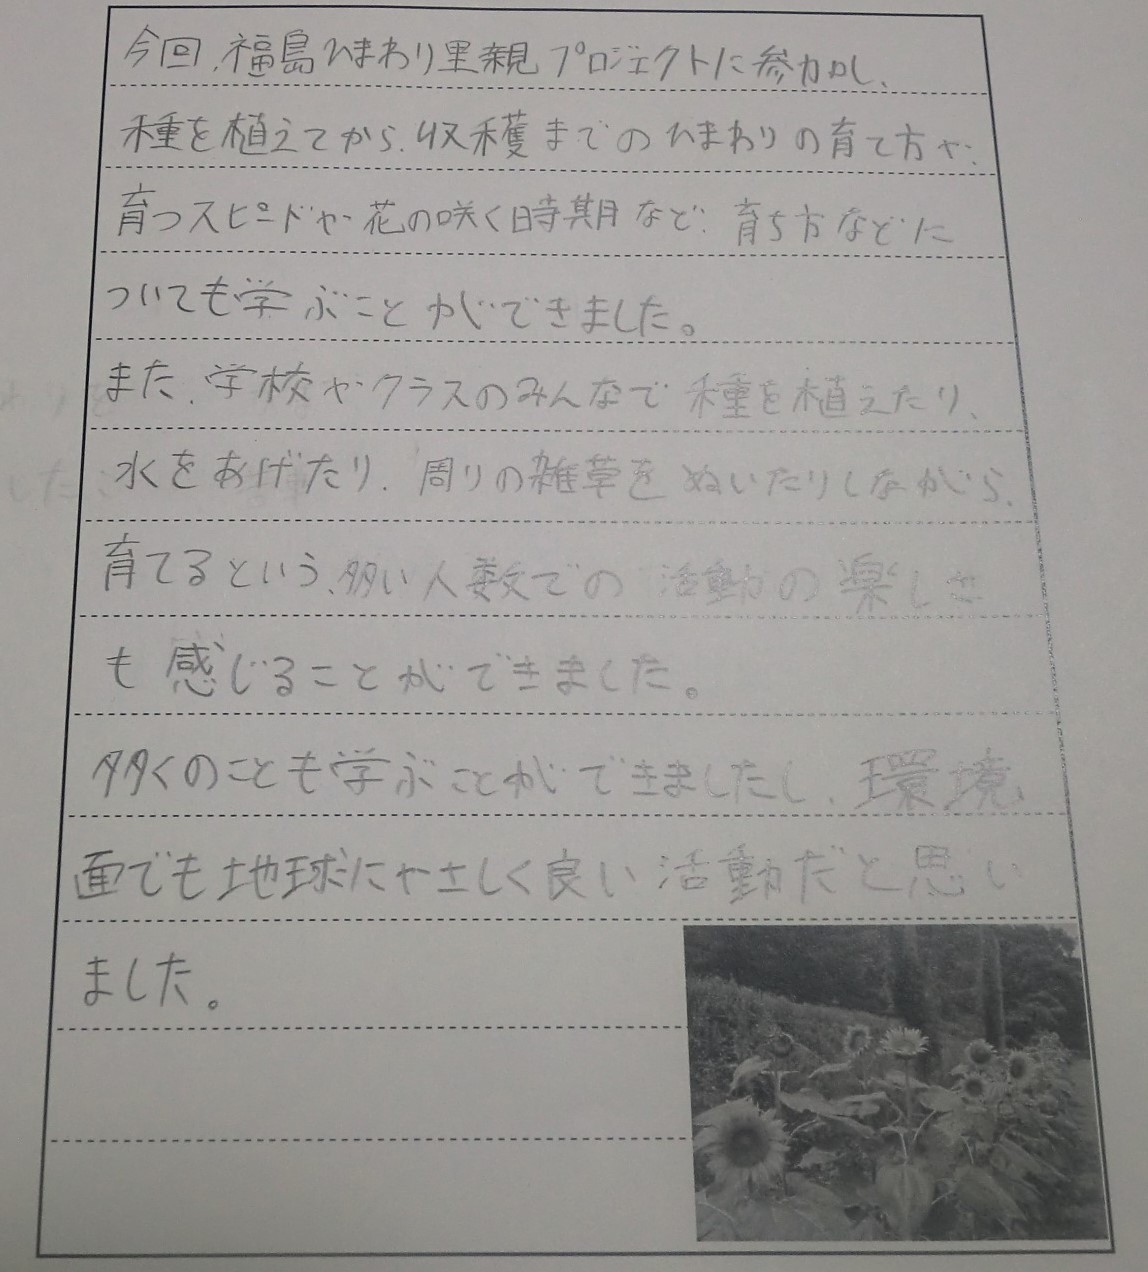 今回、福島ひまわり里親プロジェクトに参加し、
種を植えてから、収穫までのひまわりの育て方や、
育つスピードや花の咲く時期など、育ち方などに
ついても学ぶことができました。
また、学校やクラスのみんなで種を植えたり、
水をあげたり、周りの雑草をぬいたりしながら、
育てるという、多い人数での活動の楽しさ
も感じることができました。
多くのことも学ぶことができましたし、環境
面でも地球にやさしく良い活動だと思い
ました。